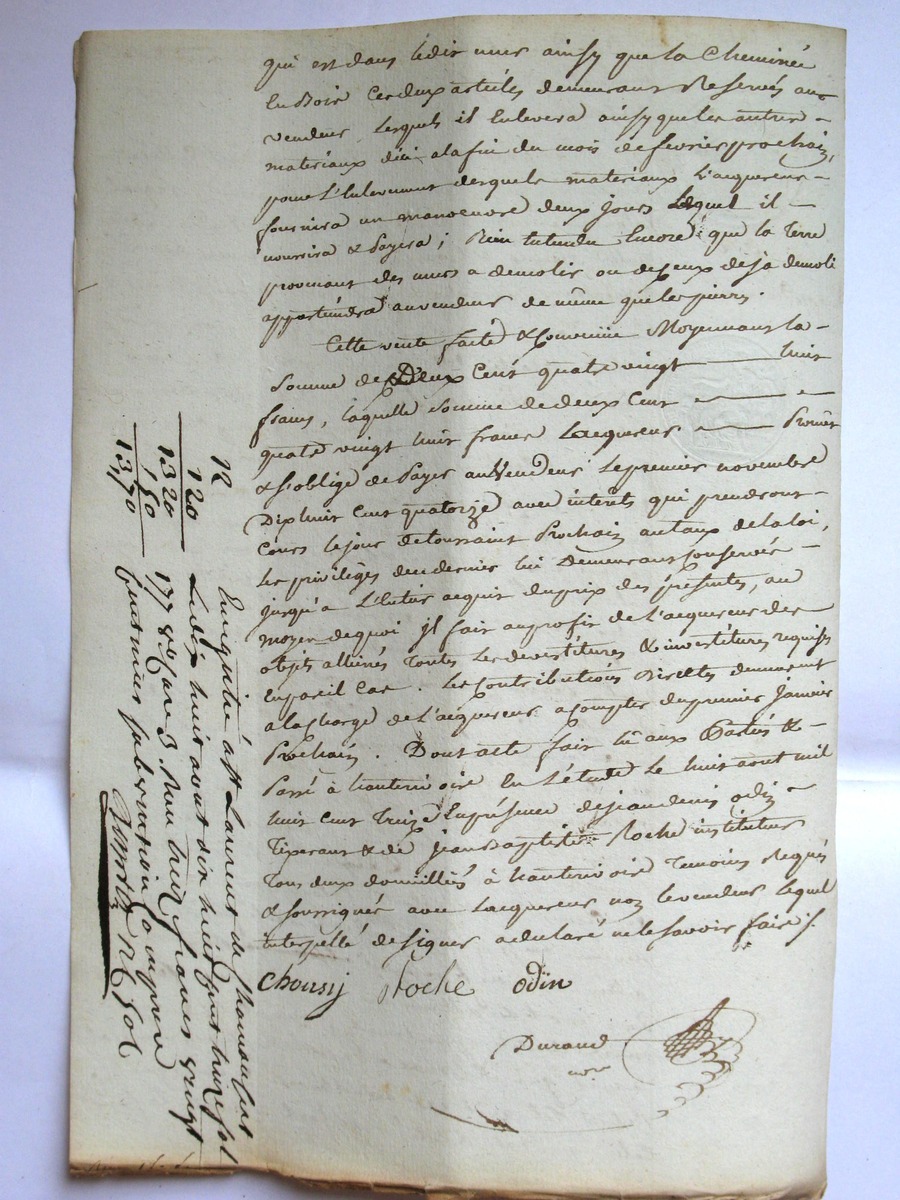 qui est dans ledit mur ainsy que la Cheminée
En Bois Ces deux articles demeurans Reservés au
vendeur, lesquels il Enlevera ainsy que les autres
materiaux dici a la fin du mois de fevrier prochain,
pour l'Enlevement desquels materiaux l'acquereur
fournira un manoeuvre deux jours lequel il
nourrira & Payera ; Bien Entendu Encore que la Terre
provenant des murs a demolir ou de Ceux deja demoli
appartiendra au vendeur de même que les pierres.
Cette vente faite & Convenüe Moyennant la
Somme de Deux Cent quatre vingt huit
francs, laquelle Somme de deux Cent
quatre vingt huit francs Lacquereur Promet
& s'oblige de Payer au Vendeur le premier novembre
Dix huit Cent quatorze avec intérêts qui prendront
Cours le jour de toussaint Prochain au taux de la loi,
les privilèges de ce dernier lui Demeurans Conservés
jusqu'a L'Entier acquit du prix des présentes, au
moyen de quoi il fait au profit de l'acquereur des
objets alliénés Toutes les devestitures & investitures requises
En pareil Cas. Les Contributions Directes demeurent
a la charge de l'acquereur a Compter du premier janvier
Prochain. Dont acte fait lû aux Parties &
Passé à hauterivoire En l'étude Le huit aout mil
huit Cent Treize En présence de jean denis odin
Tisserant & de jean Baptiste Roche instituteur
Tous deux domiciliés à hauterivoire Temoins Requis
& soussignés avec Lacquereur non le vendeur lequel
interpellé de signer a declaré ne le savoir faire /.
Chousy Roche odin
Durand
nore
Enregistré à St Laurent de Chamousset
Le dix huit aout dix huit Cent treize fol
177 Vo Case 3. Reçu treize francs vingt
Centimes subvention Comprise
12
120
1320
50
1370